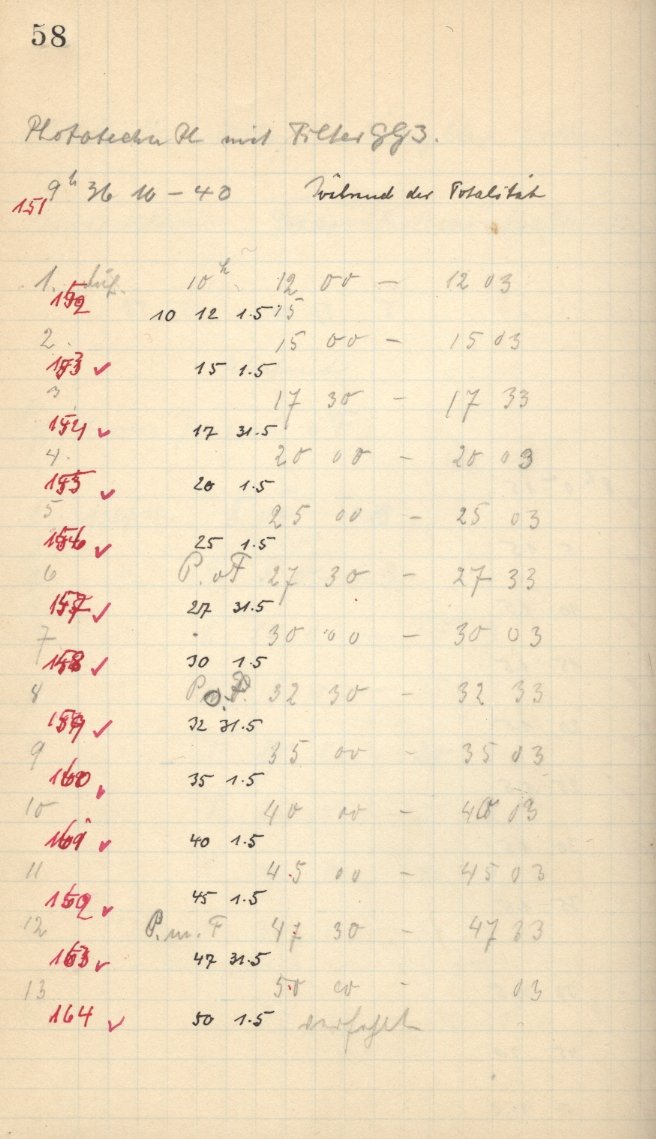 58
mit Filter GG3.
151 9h 36 10 - 40 Während der Totalität
1. 10h 12 00 - 12 03
152 10 12 1.5
2. 15 00 - 15 03
153 ✓ 15 1.5
3. 17 30 - 17 33
154 ✓ 17 31.5
4. 20 00 - 20 03
155 ✓ 20 1.5
5 25 00 - 25 03
156 ✓ 25 1.5
6 P. o F 27 30 - 27 33
157 ✓ 27 31.5
7 30 00 - 30 03
158 ✓ 30 1.5
8 32 30 - 32 33
159 ✓ 32 31.5
9 35 00 - 35 03
160 ✓ 35 1.5
10 40 00 - 40 03
161 ✓ 40 1.5
11 45 00 - 45 03
162 ✓ 45 1.5
12 P. m. F 47 30 - 47 33
163 ✓ 47 31.5
13 50 00 - 03
164 ✓ 50 1.5 verfehlt